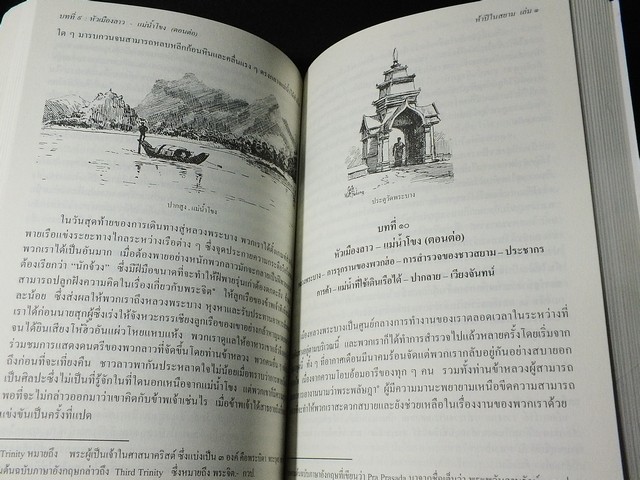 บทที่ ๙ : หัวเมืองลาว - แม่น้ำโขง (ตอนต่อ)
ใด ๆ มารบกวนจนสามารถหลบหลีกก้อนหินและคลื่นแรง ๆ
ปากสูง, แม่น้ำโขง
ในวันสุดท้ายของการเดินทางสู่หลวงพระบาง พวกเราได้
พายเรือแข่งระยะทางไกลระหว่างเรือต่าง ๆ ซึ่งจุดประกายความ
พวกเราได้เป็นอันมาก เมื่อต้องพายอย่างหนักพวกลาวมักจะกลายเป็น
ต้องเรียกว่า "นักจ้วง" ซึ่งมีฝีมือขนาดที่จะทำให้ฝีพายรุ่นเก่าต้อง
สามารถปลูกฝังความคิดในเรื่องเกี่ยวกับพระจิต ให้ลูกเรือของข้าพเจ้า
ละน้อย ซึ่งส่งผลให้พวกเราถึงหลวงพระบาง หุงหาและรับประทานอาหาร
เราได้ก่อนนายสุกผู้ซึ่งเร่งให้จังหวะกรรเชียงลูกเรือของเขาอย่าง
จนได้ยินเสียงไห้ฮึวอันแผ่วโหยแหบแห้ง พวกเราดูแลให้อาหารเขา
ร่วมชมการแสดงดนตรีของพวกลาวที่จัดขึ้นโดยท่านข้าหลวง
ถึงก่อนที่จะเที่ยงคืน ชาวลาวพากันประหลาดใจไม่น้อยเมื่อทราบว่า
เป็นศิลปะซึ่งไม่เป็นที่รู้จักในที่ใดนอกเหนือจากแม่น้ำโขง
พอที่จะไม่กล่าวออกมาว่าเขาคิดกับข้าพเจ้าเช่นไร
แข่งขันเป็นครั้งที่แปด
Trinity หมายถึง พระผู้เป็นเจ้าในศาสนาคริสต์ ซึ่งแบ่งเป็น ๓ องค์ คือพระบิดา
ต้นฉบับภาษาอังกฤษกล่าวถึง Third Trinity ซึ่งหมายถึง พระจิต
ห้าปีในสยาม เล่ม ๑
ประตูวัดพระบาง
บทที่ ๑๐
หัวเมืองลาว - แม่น้ำโขง (ตอนต่อ)
พระบาง - การรุกรานของพวกฮ่อ - การสำรวจของชาวสยาม - ประชากร
การค้า - แม่น้ำที่ใช้เดินเรือได้ - ปากลาย - เวียงจันทน์
เมืองหลวงพระบางเป็นศูนย์กลางการทำงานของเราตลอดเวลาในระหว่างที่
อยู่ตามบริเวณนี้ และพวกเราก็ได้ทำการสำรวจไปแล้วหลายครั้งโดยเริ่มจาก
ทั้ง ๆ ที่อากาศเดือนมีนาคมร้อนจัดแต่พวกเรากลับอยู่กันอย่างสบายอก
เนื่องจากความโอบอ้อมอารีของทุก ๆ คน รวมทั้งท่านข้าหลวงผู้สามารถ
นามว่าพระพลัษฎา ผู้มีความมานะพยายามเหนือขีดความสามารถ
ที่จะทำให้พวกเราสะดวกสบายและยังช่วยเหลือในเรื่องงานของพวกเราด้วย
ภาษาอังกฤษที่เขียนว่า Pra Prasada